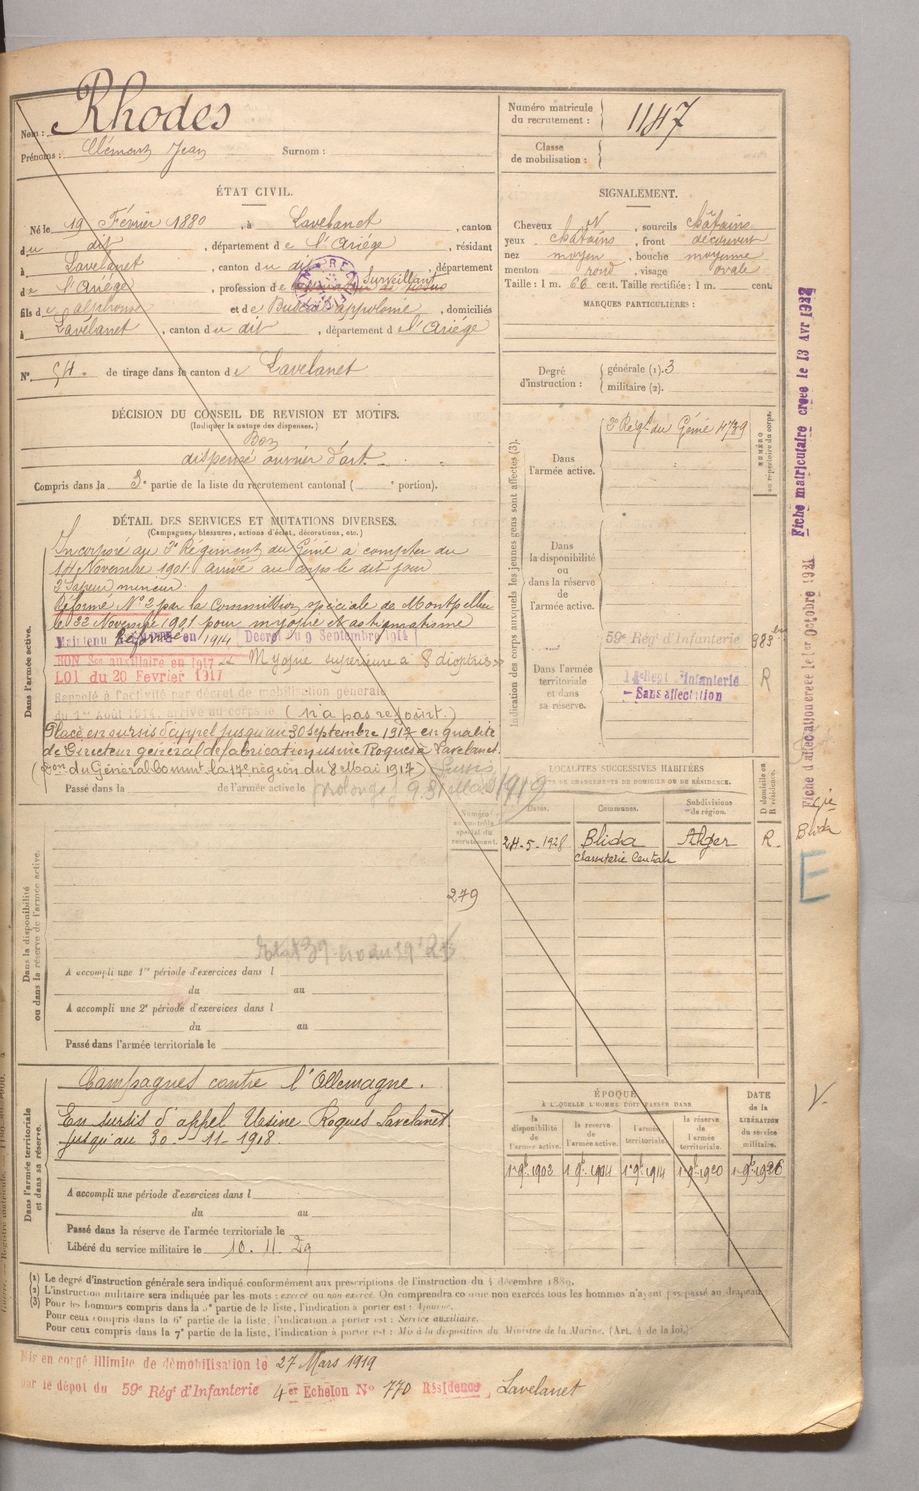 Nom : Rhodes
Prénoms : Clément Jean Surnom :
Numéro matricule du recrutement : 1147
Classe de mobilisation :
ÉTAT CIVIL.
Né le 19 Février 1880, à Lavelanet, canton
du dit, département de l'Ariége, résidant
à Lavelanet, canton du dit, département
de l'Ariége, profession de Surveillant
fils de alphonse et de appolonie, domiciliés
à Lavelanet, canton du dit, département de l'Ariége
N° 54. de tirage dans le canton de Lavelanet
SIGNALEMENT.
Cheveux N, sourcils châtains
yeux châtains, front découvert
nez moyen, bouche moyenne
menton rond, visage ovale
Taille : 1 m. 66 cent. Taille rectifiée : 1 m. cent.
MARQUES PARTICULIÈRES :
Degré d'instruction : générale (1). 3
militaire (2).
DÉCISION DU CONSEIL DE REVISION ET MOTIFS.
(Indiquer la nature des dispenses.)
Bon
dispensé ouvrier d'art
Compris dans la 3e partie de la liste du recrutement cantonal ( e portion).
DÉTAIL DES SERVICES ET MUTATIONS DIVERSES.
(Campagnes, blessures, actions d'éclat, décorations, etc.)
Dans l'armée active.
Incorporé au 3e Régiment du Génie à compter du
14 Novembre 1901 arrivé au corps le dit jour
2e Sapeur mineur
Réformé N° 2 par la Commission spéciale de Montpellier
le 22 Novembre 1901 pour myopie et astigmatisme
Maintenu Réformé en 1914 Décret du 9 Septembre 1914
BON Sce auxiliaire en 1917 Myopie supérieure à 8 dioptries
LOI du 20 Février 1917
Rappelé à l'activité par décret de mobilisation générale
du 1er Août 1914. arrivé au corps le (n'a pas rejoint.)
Placé en sursis d'appel jusqu'au 30 septembre 1917 en qualité
de Directeur général de fabrication usine Roques à Lavelanet.
(Don du Général Commt la 17e région du 8 Mai 1917) Sursis
Passé dans la de l'armée active le prolongé 31 Mars 1919
Indication des corps auxquels les jeunes gens sont affectés (3).
Dans l'armée active. 3e Régt du Génie 4739
NUMÉRO au répertoire du corps.
Dans la disponibilité ou dans la réserve de l'armée active.
Dans l'armée territoriale et dans sa réserve.
59e Régt d'Infanterie
14e Régt d'Infanterie R
- Sans affectation
LOCALITÉS SUCCESSIVES HABITÉES
Dates. Communes. Subdivisions de région. D domicile ou R résidence.
24-5-1928 Blida Alger R.
Numéro au contrôle spécial du recrutement.
279
Dans la disponibilité ou dans la réserve de l'armée active.
A accompli une 1re période d'exercices dans l
du au
A accompli une 2e période d'exercices dans l
du au
Passé dans l'armée territoriale le
Dans l'armée territoriale et dans sa réserve.
Campagnes contre l'Allemagne.
En sursis d'appel Usine Roques Lavelanet
jusqu'au 30-11-1918
A accompli une période d'exercices dans l
du au
Passé dans la réserve de l'armée territoriale le
Libéré du service militaire le 10. 11. 29
ÉPOQUE
À LAQUELLE L'HOMME DOIT PASSER DANS
la disponibilité de l'armée active. la réserve de l'armée active. l'armée territoriale. la réserve de l'armée territoriale.
DATE de la LIBÉRATION du service militaire.
1er 9bre 1902 1er 9bre 1904 1er 9bre 1914 1er 9bre 1920 1er 9bre 1926
(1) Le degré d'instruction générale sera indiqué conformément aux prescriptions de l'instruction du 4 décembre 1889.
(2) L'instruction militaire sera indiquée par les mots : exercé ou non exercé. On comprendra comme non exercés tous les hommes n'ayant pas passé au drapeau.
(3) Pour les hommes compris dans la 5e partie de la liste, l'indication à porter est : Ajourné.
Pour ceux compris dans la 6e partie de la liste, l'indication à porter est : Service auxiliaire.
Pour ceux compris dans la 7e partie de la liste, l'indication à porter est : Mis à la disposition du Ministre de la Marine. (Art. 4 de la loi.)
Mis en congé illimité de démobilisation le 27 Mars 1919
par le dépôt du 59e Régt d'Infanterie 4er Echelon N° 770 Résidence, Lavelanet
Fiche matriculaire créée le 13 Avr 1932
Fiche d'affectation créée le 1er Octobre 1921
Blida
E
V.